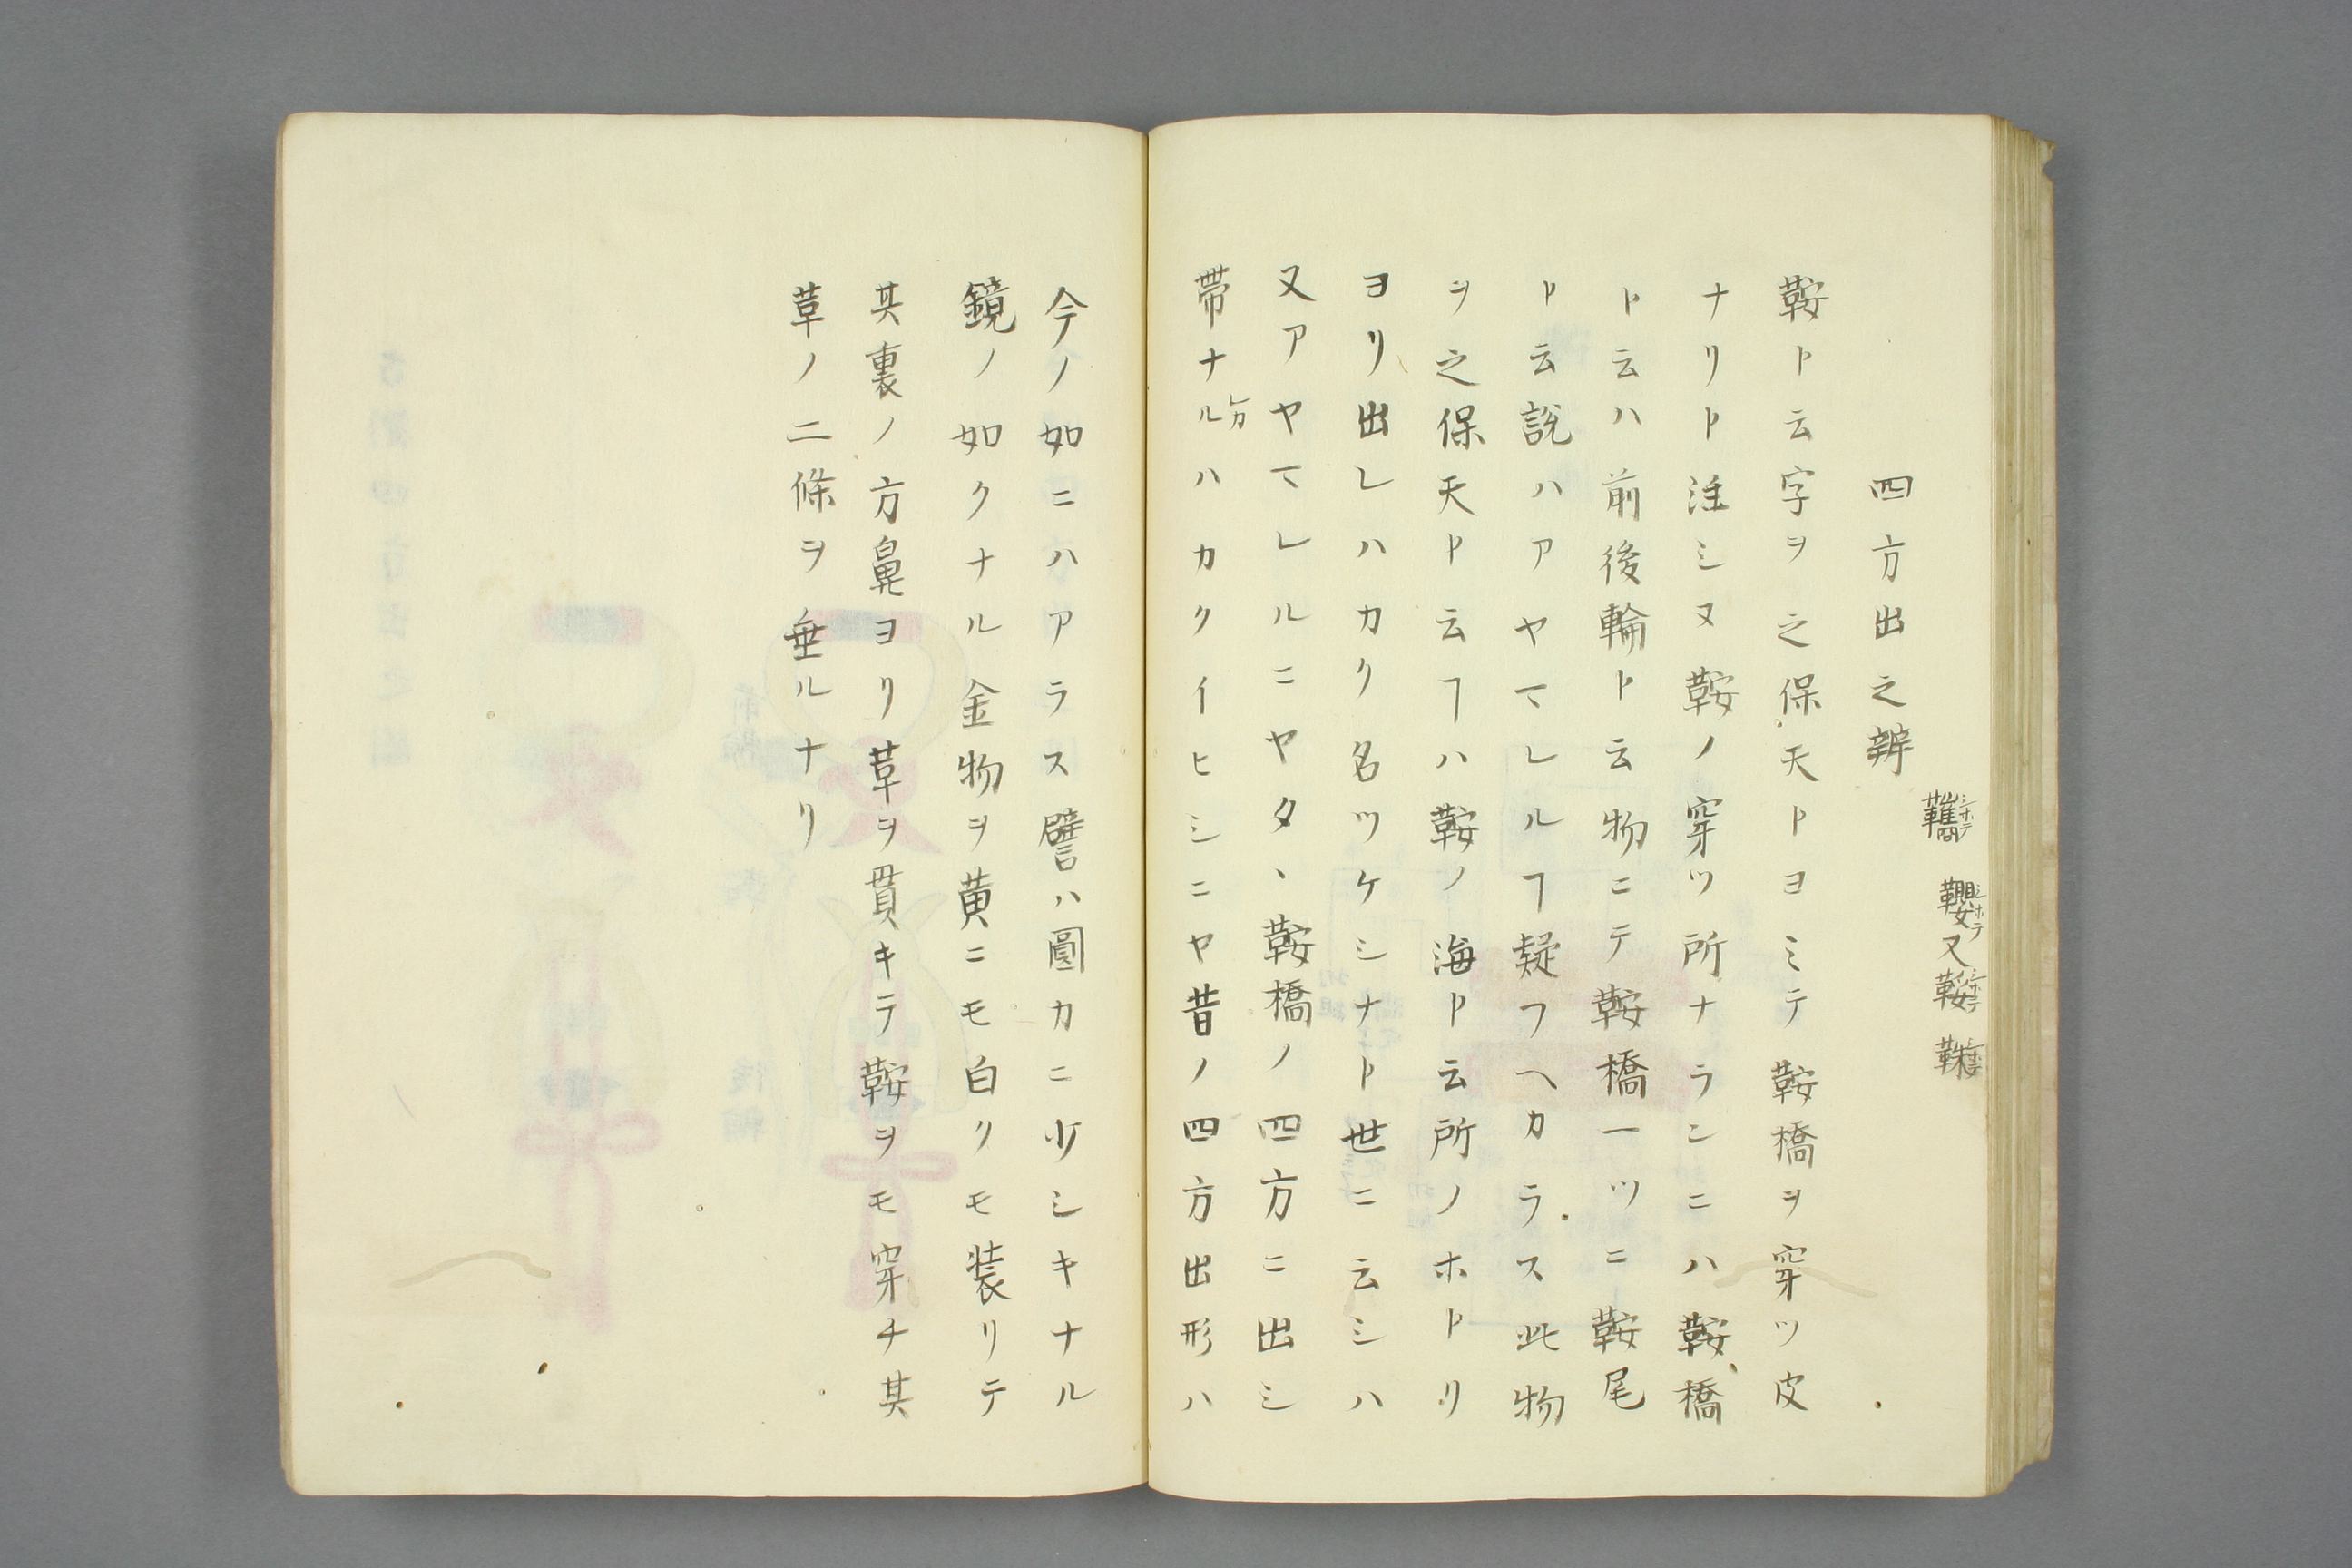 四方出之辨
鞍ト云字ヲ之保天トヨミテ鞍橋ヲ穿ツ皮
ナリト注シヌ鞍ノ穿ツ所ナランニハ鞍橋
ト云ハ前後輪ト云物ニテ鞍橋一ツニ鞍尾
ト云説ハアヤマレルヿ疑フヘカラス此物
ヲ之保天ト云ヿハ鞍ノ海ト云所ノホトリ
ヨリ出レハカク名ツケシナト世ニ云シハ
又アヤマレルニヤタヽ鞍橋ノ四方ニ出シ
帯ナルハカクイヒシニヤ昔ノ四方出形ハ
レカ
今ノ如ニハアラス譬ハ圓カニ少シキナル
鏡ノ如クナル金物ヲ黄ニモ白クモ装リテ
其裏ノ方鼻ヨリ草ヲ貫キテ鞍ヲモ穿チ其
草ノ二條ヲ垂ルナリ